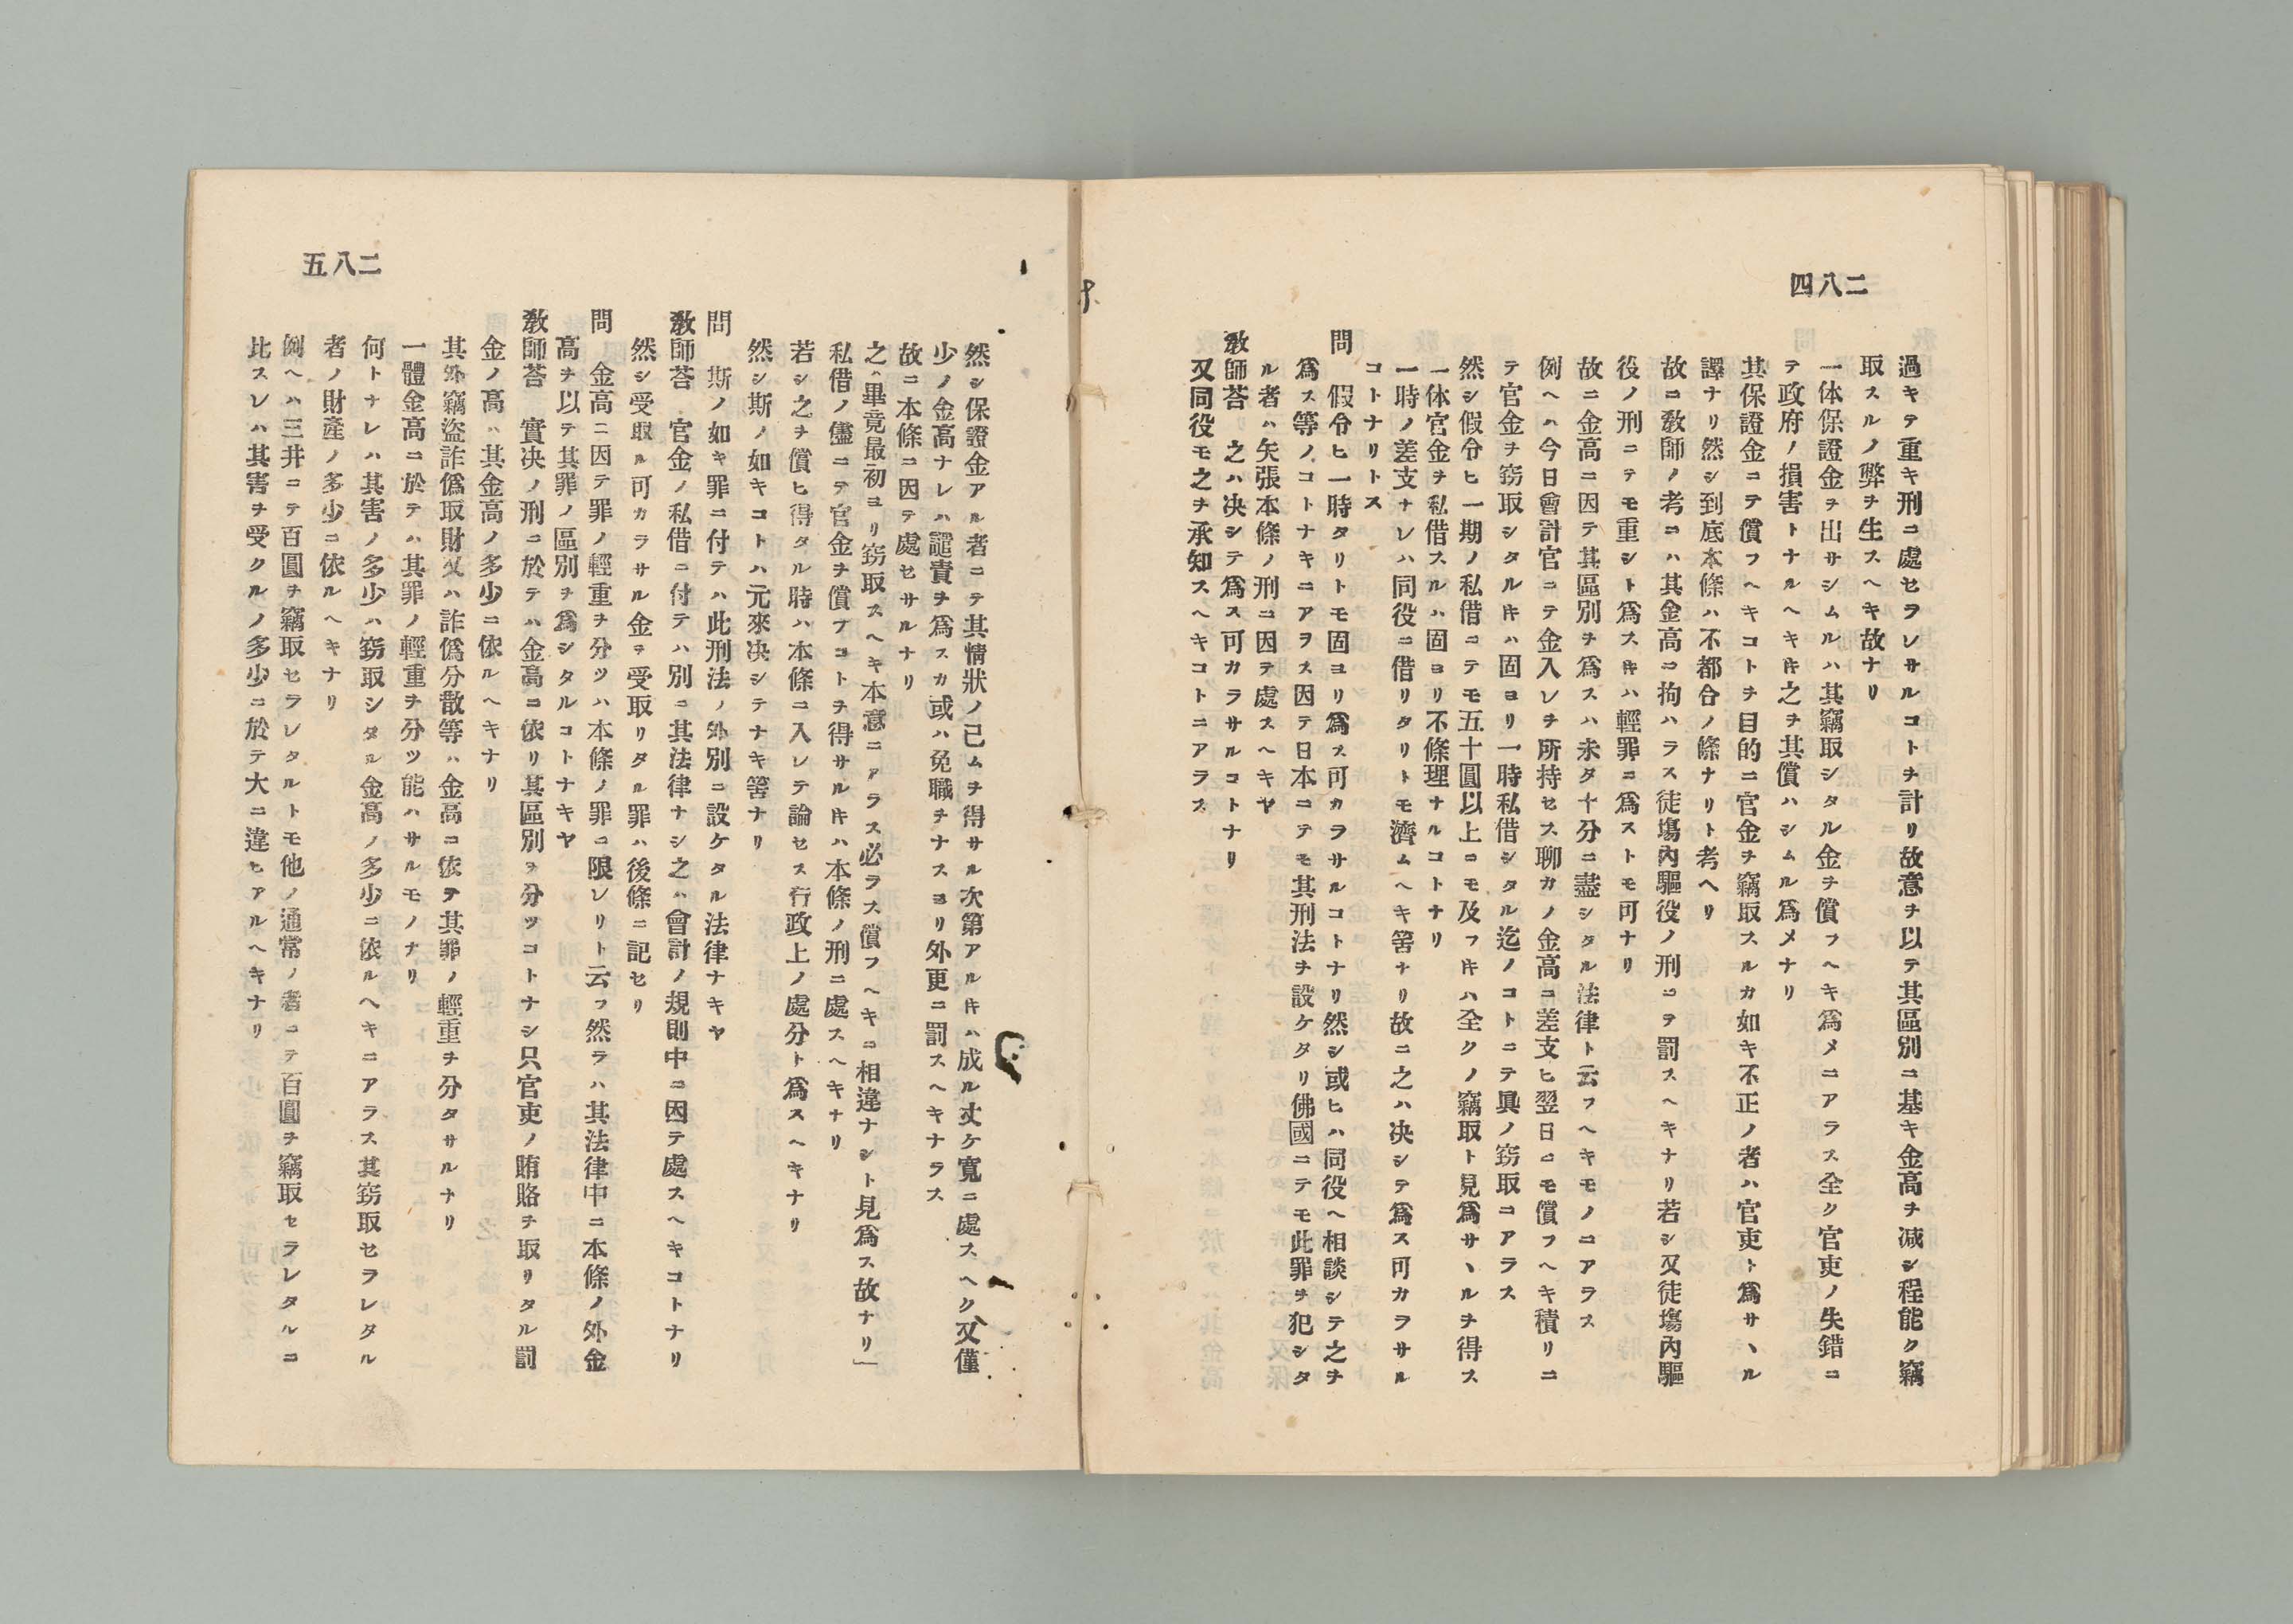 二八四
過キテ重キ刑ニ處セラレサルコトヲ計リ故意ヲ以テ其區別ニ基キ金高ヲ減シ程能ク竊
取スルノ弊ヲ生スヘキ故ナリ
一体保證金ヲ出サシムルハ其竊取シタル金ヲ償フヘキ爲メニアラス全ク官吏ノ失錯ニ
テ政府ノ損害トナルヘキ𪜈之ヲ其償ハシムル爲メナリ
其保證金ニテ償フヘキコトヲ目的ニ官金ヲ竊取スルカ如キ不正ノ者ハ官吏ト爲サヽル
譯ナリ然シ到底本條ハ不都合ノ條ナリト考ヘリ
故ニ敎師ノ考ニハ其金高ニ拘ハラス徒塲內驅役ノ刑ニヲ罰スヘキナリ若シ又徒塲內驅
役ノ刑ニテモ重シト爲ス𪜈ハ輕罪ニ爲ストモ可ナリ
故ニ金高ニ因テ其區別ヲ爲スハ未タ十分ニ盡シタル法律ト云フヘキモノニアラス
例ヘハ今日會計官ニテ金入レヲ所持セス聊カノ金高ニ差支ヒ翌日ニモ償フヘキ積リニ
テ官金ヲ竊取シタル𪜈ハ固ヨリ一時私借シタル迄ノコトニテ眞ノ竊取ニアラス
然シ假令ヒ一期ノ私借ニテモ五十圓以上ニモ及フ𪜈ハ全クノ竊取ト見爲サヽルヲ得ス
一体官金ヲ私借スルハ固ヨリ不條理ナルコトナリ
一時ノ差支ナレハ同役ニ借リタリトモ濟ムヘキ筈ナリ故ニ之ハ决シテ爲ス可カラサル
コトナリトス
問　假令ヒ一時タリトモ固ヨリ爲ス可カラサルコトナリ然シ或ヒハ同役ヘ相談シテ之ヲ
爲ス等ノコトナキニアラス因テ日本ニテモ其刑法ヲ設ケタリ佛國ニテモ此罪ヲ犯シタ
ル者ハ矢張本條ノ刑ニ因テ處スヘキヤ
敎師荅　之ハ决シテ爲ス可カラサルコトナリ
又同役モ之ヲ承知スヘキコトニアラス
二八五
然シ保證金アル者ニテ其情狀ノ已ムヲ得サル次第アル𪜈ハ成ル丈ケ寬ニ處スヘク又僅
少ノ金高ナレハ譴責ヲ爲スカ或ハ免職ヲナスヨリ外更ニ罰スヘキナラス
故ニ本條ニ因テ處セサルナリ
之ハ畢竟最初ヨリ竊取スヘキ本意ニアラス必ラス償フヘキニ相違ナシト見爲ス故ナリ」
私借ノ儘ニテ官金ヲ償フコトヲ得サル𪜈ハ本條ノ刑ニ處スヘキナリ
若シ之ヲ償ヒ得タル時ハ本條ニ入レテ論セス行政上ノ處分ト爲スヘキナリ
然シ斯ノ如キコトハ元來决シテナキ筈ナリ
問　斯ノ如キ罪ニ付テハ此刑法ノ外別ニ設ケタル法律ナキヤ
敎師荅　官金ノ私借ニ付テハ別ニ其法律ナシ之ハ會計ノ規則中ニ因テ處スヘキコトナリ
然シ受取ル可カラサル金ヲ受取リタル罪ハ後條ニ記セリ
問　金高ニ因テ罪ノ輕重ヲ分ツハ本條ノ罪ニ限レリト云フ然ラハ其法律中ニ本條ノ外金
高ヲ以テ其罪ノ區別ヲ爲シタルコトナキヤ
敎師荅　實决ノ刑ニ於テハ金高ニ依リ其區別ヲ分ツコトナシ只官吏ノ賄賂ヲ取リタル罰
金ノ高ハ其金高ノ多少ニ依ルヘキナリ
其外竊盜詐僞取財又ハ詐僞分散等ハ金高ニ依テ其罪ノ輕重ヲ分タサルナリ
一體金高ニ於テハ其罪ノ輕重ヲ分ツ能ハサルモノナリ
何トナレハ其害ノ多少ハ竊取シタル金高ノ多少ニ依ルヘキニアラス其竊取セラレタル
者ノ財產ノ多少ニ依ルヘキナリ
例ヘハ三井ニテ百圓ヲ竊取セラレタルトモ他ノ通常ノ者ニテ百圓ヲ竊取セラレタルニ
比スレハ其害ヲ受クルノ多少ニ於テ大ニ違ヒアルヘキナリ